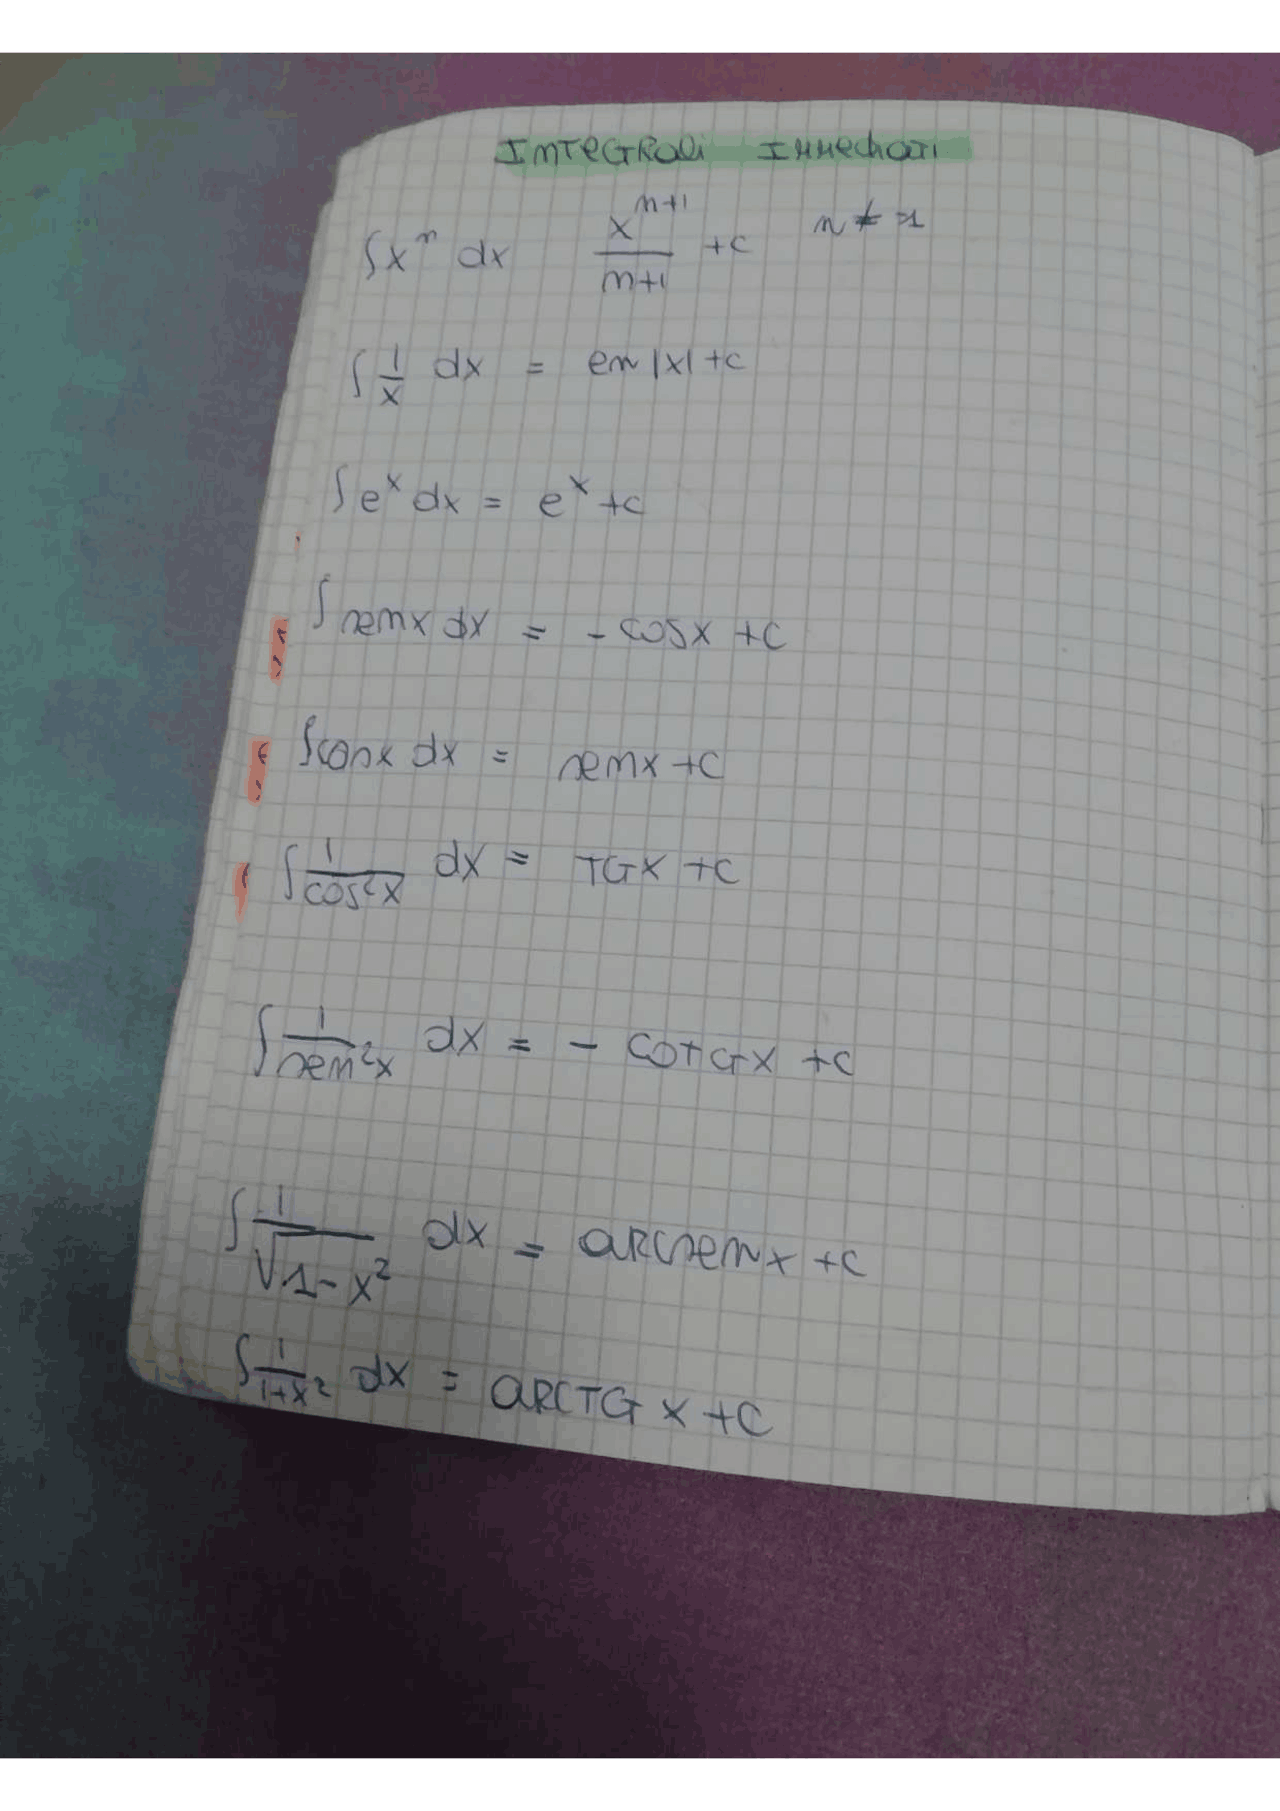 INTEGRALI IMMEDIATI
∫xⁿ dx x^(n+1)/(n+1) +c n ≠ -1
∫ 1/x dx = ln |x| +c
∫e^x dx = e^x +c
∫ senx dx = - cosx +c
∫cosx dx = senx +c
∫ 1/cos²x dx = TGx +c
∫ 1/sen²x dx = - cotGx +c
∫ 1/√(1-x²) dx = arcsenx +c
∫ 1/(1+x²) dx = ARCTG x +c